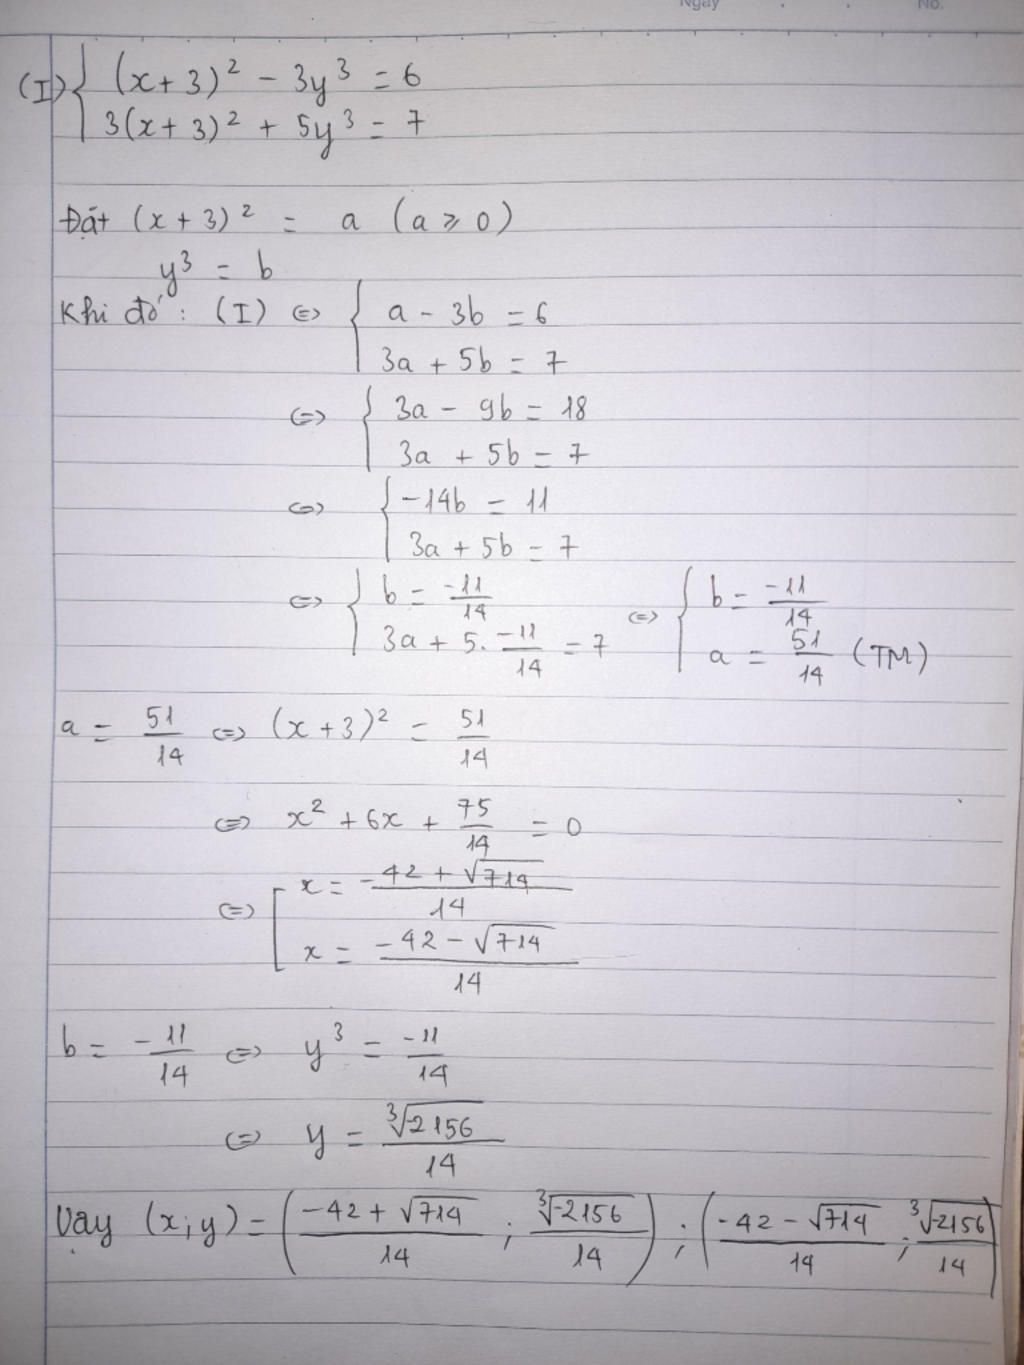 Ngày No.
(I) { (x+3)² - 3y³ = 6
3(x+3)² + 5y³ = 7
Đặt (x+3)² = a (a ⩾ 0)
y³ = b
Khi đó: (I) ⇔ { a - 3b = 6
3a + 5b = 7
⇔ { 3a - 9b = 18
3a + 5b = 7
⇔ { -14b = 11
3a + 5b = 7
⇔ { b = -11/14 ⇔ { b = -11/14
3a + 5. -11/14 = 7 a = 51/14 (TM)
a = 51/14 ⇔ (x+3)² = 51/14
⇔ x² + 6x + 75/14 = 0
⇔ [ x = (-42 + √714)/14
x = (-42 - √714)/14
b = -11/14 ⇔ y³ = -11/14
⇔ y = ∛-2156/14
Vậy (x;y) = ((-42 + √714)/14 ; ∛-2156/14) ; ((-42 - √714)/14 ; ∛-2156/14)